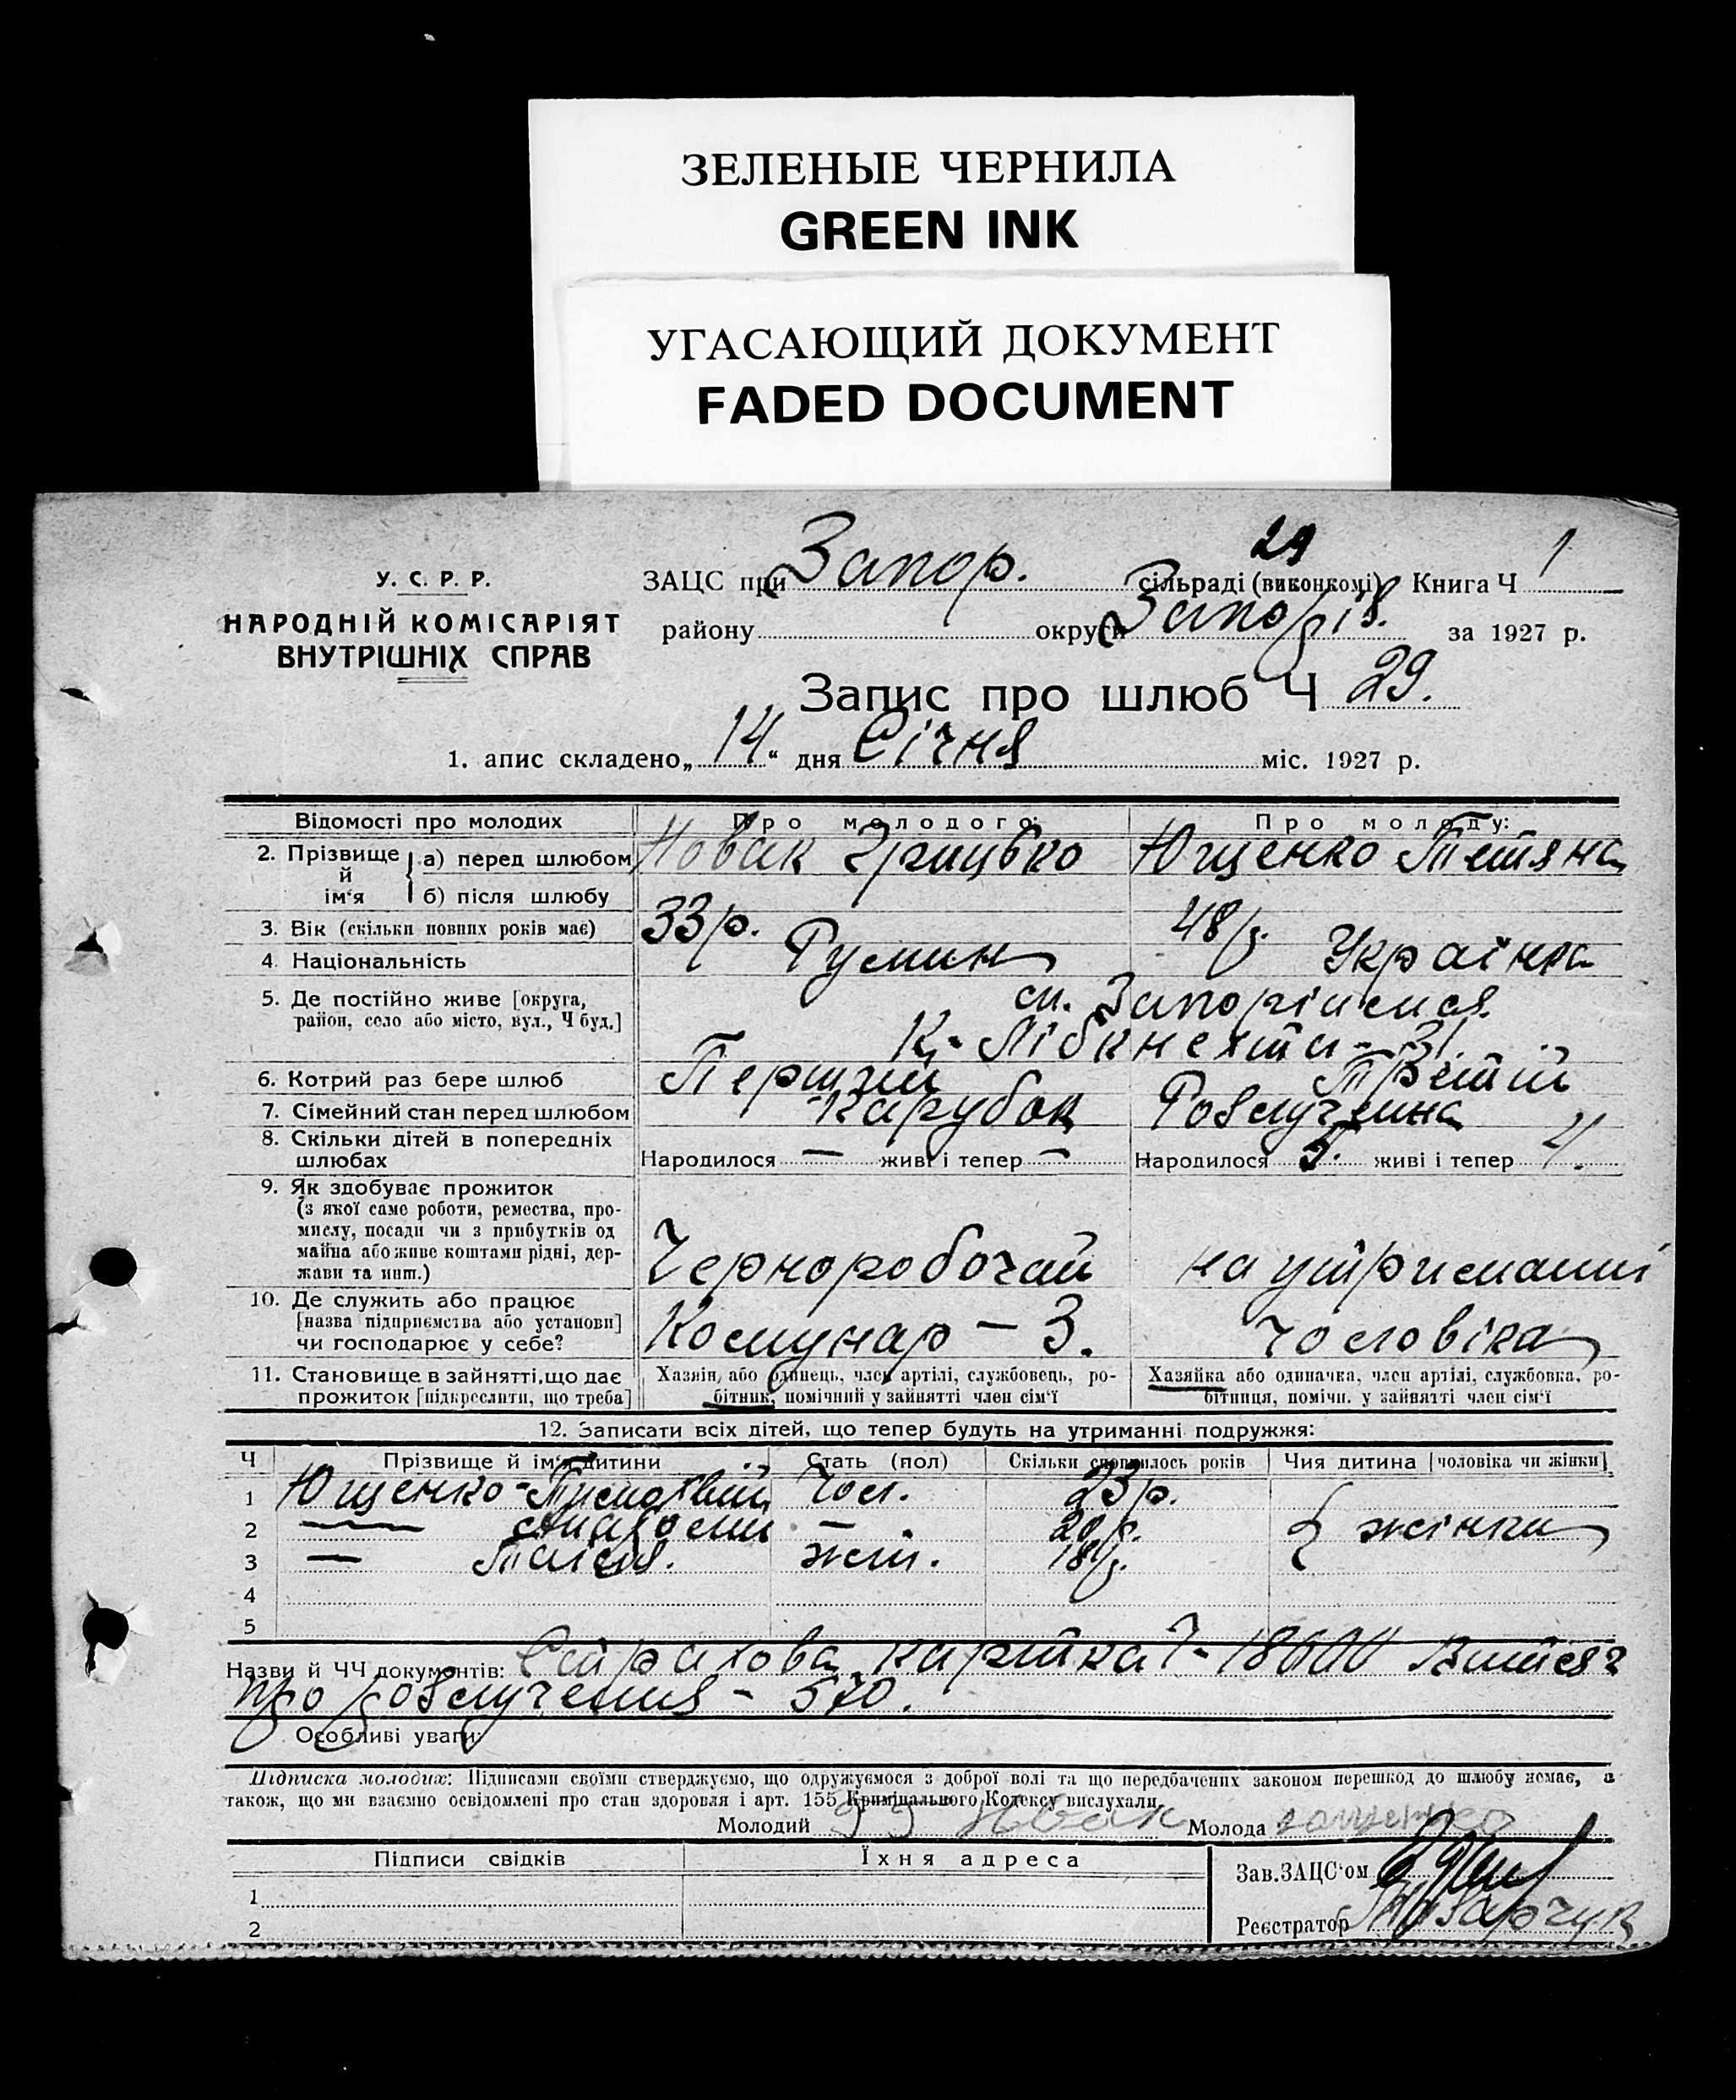 ЗЕЛЕНЫЕ ЧЕРНИЛА
GREEN INK
УГАСАЮЩИЙ ДОКУМЕНТ
FADED DOCUMENT
29
У. С. Р. Р.
НАРОДНІЙ КОМІСАРІЯТ
ВНУТРІШНІХ СПРАВ
ЗАЦС при Запор. сільраді (виконкомі) Книга Ч 1
району округи Запоріз. за 1927 р.
Запис про шлюб Ч 29.
1. апис складено „14“ дня Січня міс. 1927 р.
Відомості про молодих Про молодого: Про молоду:
2. Прізвище й ім‘я а) перед шлюбом Новак Грицько Ющенко Тетяна
б) після шлюбу
3. Вік (скільки повних років має) 33 р. 48 р.
4. Національність Румин Українка
5. Де постійно живе [округа, район, село або місто, вул., Ч буд.] м. Запоріжжя.
К. Лібкнехта - 31
6. Котрий раз бере шлюб Перший Третій
7. Сімейний стан перед шлюбом Парубок Розлучена
8. Скільки дітей в попередніх шлюбах Народилося — живі і тепер — Народилося 5. живі і тепер 4.
9. Як здобуває прожиток
(з якої саме роботи, ремества, про-
мислу, посади чи з прибутків од
майна або живе коштами рідні, дер-
жави та инш.) Чорноробочий на утриманні
10. Де служить або працює
[назва підприємства або установи]
чи господарює у себе? Комунар - 3. Чоловіка
11. Становище в зайнятті, що дає
прожиток [підкреслити, що треба]
Хазяін, або одинець, член артілі, службовець, ро-
бітник, помічний у зайнятті член сім‘ї
Хазяйка або одиначка, член артілі, службовка, ро-
бітниця, помічн. у зайнятті член сім‘ї
12. Записати всіх дітей, що тепер будуть на утриманні подружжя:
Ч Прізвище й ім‘я дитини Стать (пол) Скільки сповнилось років Чия дитина [чоловіка чи жінки]
1 Ющенко - Тимофтій Чол. 23 р.
2 — — 20 р. жінки
3 — Тался. жін. 18 р.
4
5
Назви й ЧЧ документів: Страхова картка Ч - Витяг
про розлучення - 570.
Особливі уваги:
Підписка молодих: Підписами своїми стверджуємо, що одружуємося з доброї волі та що передбачених законом перешкод до шлюбу немає, а
також, що ми взаємно освідомлені про стан здоровля і арт. 155 Кримінального Кодексу вислухали.
Молодий Новак Молода Ющенко
Підписи свідків Їхня адреса
Зав. ЗАЦС‘ом
1
Реєстратор
2